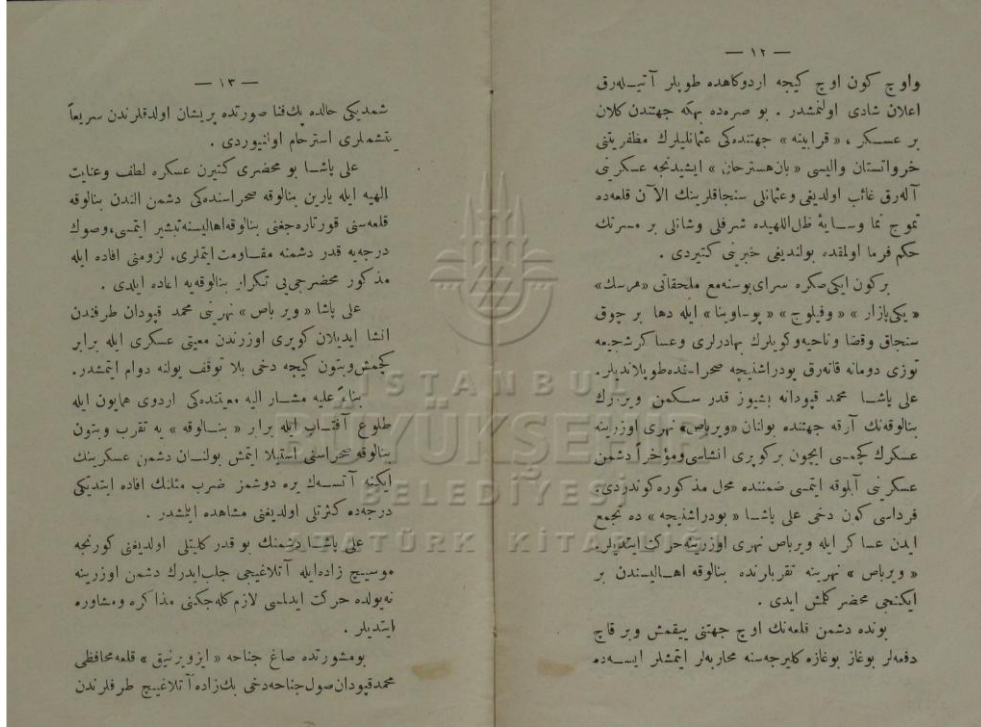 — ١٢ —
واوچ كون اوچ كیجه اردوكاهده طوپلر آتیـلهرق
اعلان شادی اولنمشدر . بو صرهده بهكه جهتندن كلان
بر عسـكر ، « قرابینه » جهتندهكی عثمانلیلرك مظفریتنی
خرواتستان والیسی « یان هسترحان » ایشیدنجه عسكرینی
آلهرق غائب اولدیغی وعثمانلی سنجاقلرینك الآن قلعهده
تموج نما وسـایهٔ ظل اللهیده شرفلی وشانلی بر مسرتك
حكم فرما اولمقده بولندیغی خبرینی كتیردی .
بركون ایكی صكره سرای بوسنه مع ملحقاتی « هرسك »
« یكی بازار » « وفیلوج » « پو-اوینا » ایله دها بر چوق
سنجاق وقضا وناحیه وكویلرك بهادرلری وعساكر شجیعه
توزی دومانه قاتهرق پودراشنیچه صحراسنده طوپلاندیلر.
علی پاشـا محمد قپودانه بشیوز قدر سـكمن ویررك
بنالوقهنك آرقه جهتنده بولنان «ویرباص» نهری اوزرینه
عسكرك كچمسی ایچون بر كوپری انشاسی ومؤخراً دشمن
عسكرینی آبلوقه ایتمسی ضمننده محل مذكوره كوندردی.
فرداسی كون دخی علی پاشـا « بودراشنیچه » ده تجمع
ایدن عساكر ایله ویرباص نهری اوزرینه حركت ایتدیلر.
« ویرباص » نهرینه تقربلرنده بنالوقه اهـالیسندن بر
ایكنجی محضر كلمش ایدی .
بونده دشمن قلعهنك اوچ جهتنی ییقمش وبر قاچ
دفعهلر بوغاز بوغازه كلیرجهسنه محاربهلر ایتمشلر ایسـهده
— ١٣ —
شمدیكی حالده پك فنا صورتده پریشان اولدقلرندن سریعاً
یتشملری استرحام اولنیوردی .
علی پاشـا بو محضری كتیرن عسكره لطف وعنایت
الهیه ایله یارین بنالوقه صحراسندهكی دشمن الندن بنالوقه
قلعهسنی قورتارهجغنی بنالوقه اهالیسنه تبشیر ایتمسی، وصوك
درجهیه قدر دشمنه مقـاومت ایتملری، لزومنی افاده ایله
مذكور محضرجی یی تكرار بنالوقهیه اعاده ایلدی .
علی پاشا « ویر باص » نهرینی محمد قپودان طرفندن
انشا ایدیلان كوپری اوزرندن معیتی عسكری ایله برابر
كچمش وبتون كیجه دخی بلا توقف یولنه دوام ایتمشدر.
بناءً علیه مشـار الیه معیتندهكی اردوی همایون ایله
طلوع آفتـاب ایله برابر « بنـالوقه » یه تقرب وبتون
بنالوقه صحراسنی استیلا ایتمش بولنـان دشمن عسكرینك
ایكنه آتسـهك یره دوشمز ضرب مثلنك افاده ایتدیكی
درجهده كثرتلی اولدیغنی مشاهده ایلمشدر .
علی پاشـا دشمنك بو قدر كلیتلی اولدیغنی كورنجه
موسییچ زاده ایله آتلاغیجی جلب ایدرك دشمن اوزرینه
نه یولده حركت ایدلمسی لازم كلهجكنی مذاكره ومشاوره
ایتدیلر .
بو مشورتده صاغ جناحه « ایزویرنیق » قلعه محافظی
محمد قپودان صول جناحه دخی بك زاده آتلاغییچ طرفلرندن
ISTANBUL
BÜYÜKŞEHİR
BELEDİYESİ
ATATÜRK KİTAPLIĞI